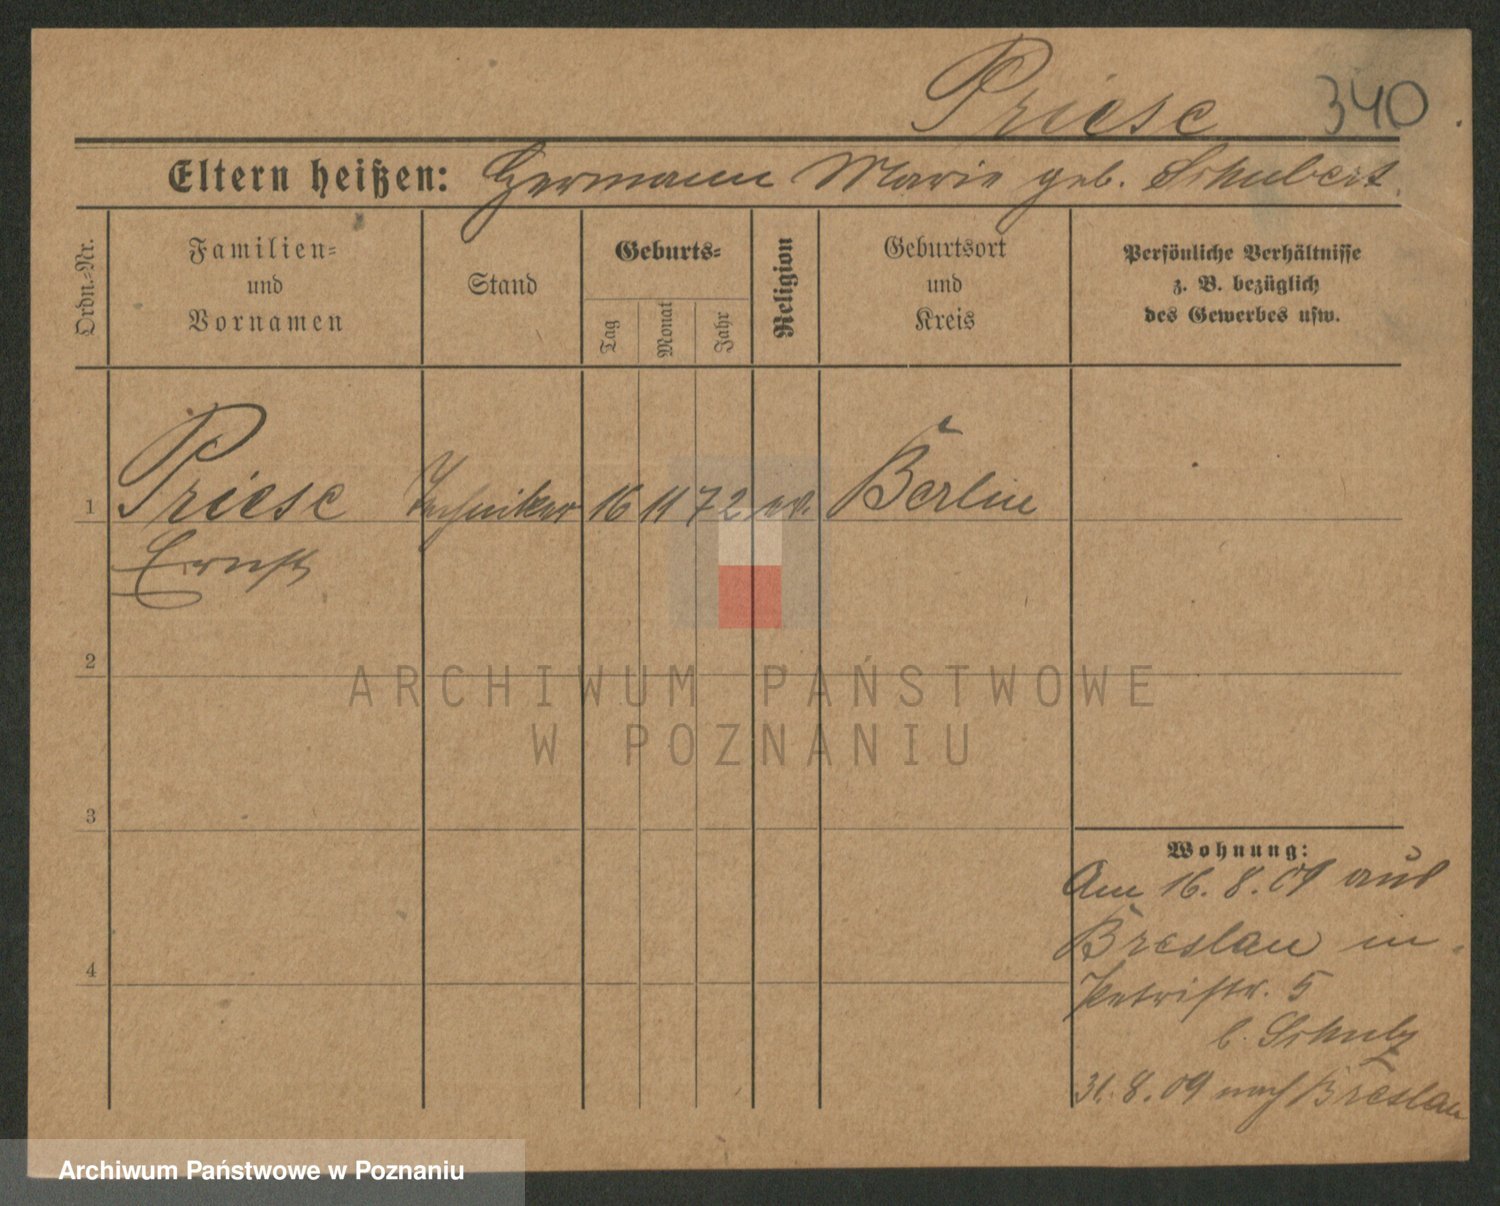 Priese 340
Eltern heißen: Hermann Marie geb. Schubert.
Ordn.-Nr.
Familien-
und
Vornamen
Stand
Geburts-
Tag
Monat
Jahr
Religion
Geburtsort
und
Kreis
Persönliche Verhältnisse
z. B. bezüglich
des Gewerbes usw.
1 Priese Techniker 16 11 72 ev. Berlin
Ernst
2
ARCHIWUM PAŃSTWOWE
W POZNANIU
3
Wohnung:
Am 16. 8. 09 aus
Breslau in
4
Petristr. 5
b. Schulz
31. 8. 09 nach Breslau
Archiwum Państwowe w Poznaniu